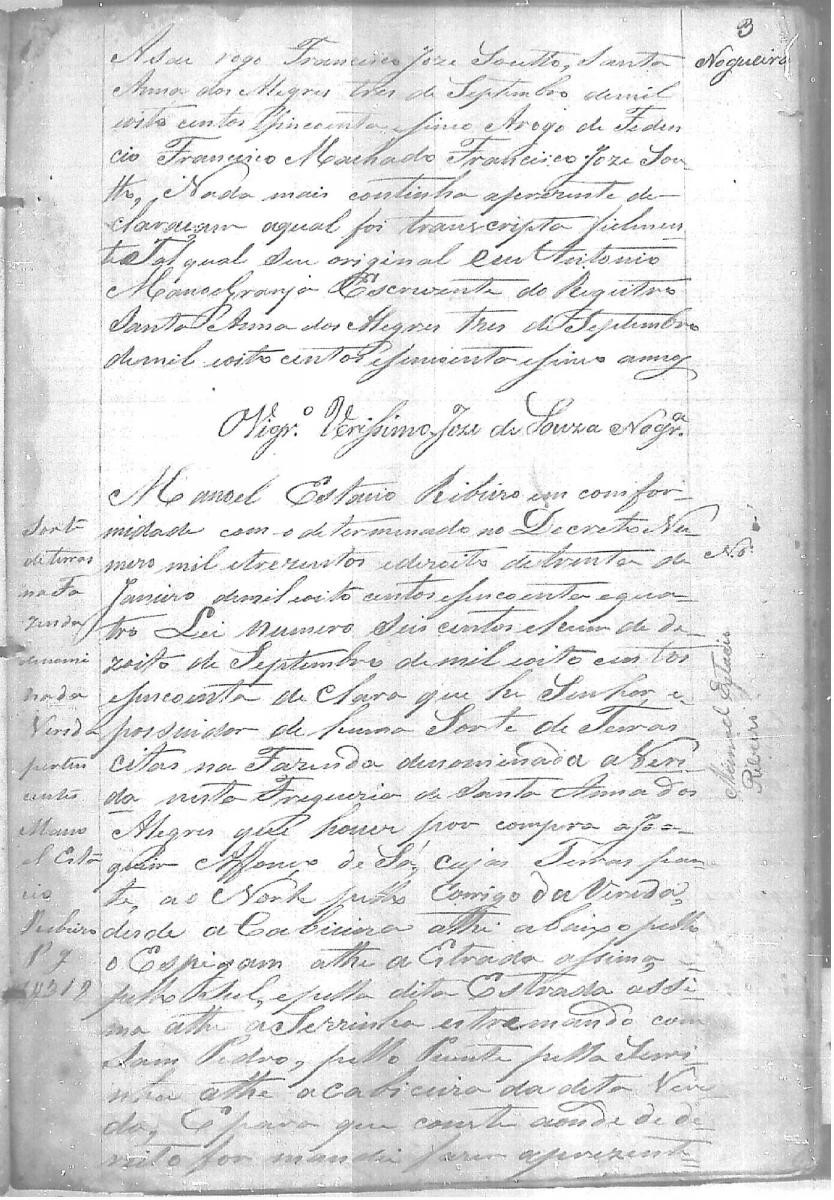 3
Nogueira
A seu rogo Francisco Joze Soutto, Santa
Anna dos Alegres tres de Septembro demil
oito centos Sincoenta esinco Arogo de Feden
cio Francisco Machado Francisco Joze Sou
tto, Nada mais continha aprezente de
claraçam aqual foi transcripta fielmen
te Tal qual seu original eeu Antonio
Manoel Granja Escrevente do Registro
Santa Anna dos Alegres tres de Septembro
demil oito centos esincoenta esinco annos
O Vigr.º Verissimo Joze de Souza Nogr.ª
Manoel Estacio Ribeiro em comfor
midade com o determinado no Decreto Nu
mero mil etrezentos edezoito detrinta de
Janeiro demil oito centos esincoenta equa
tro Lei numero seis centos ehum de de
zoito de Septembro de mil oito centos
esincoenta de Clara que he Senhor, e
possuidor de huma Sorte de Terras
citas na Fazenda denominada a Veri
da nesta Freguezia de Santa Anna dos
Alegres que houve por compra a Jo
quim Affonço de Sá, cujas Terras par
te, ao Norte pello Corrigo da Vereda,
desde a Cabiceira athe abaixo pello
o Espigam athe a Estrada assima,
pello Sul, epella dita Estrada assi
ma athe a Serrinha estremando com
Sam Pedro, pello Puente pella Serri
nha athe a cabiceira da dita Vere
da, Epara que conste aonde de de
reito for mandei fazer aprezente
Sorte
de terras
na Fa
zenda
denomi
nada
Verida
perten
centes
Mano
el Está
cio
Ribeiro
Nº
Manoel Estacio
Ribeiro